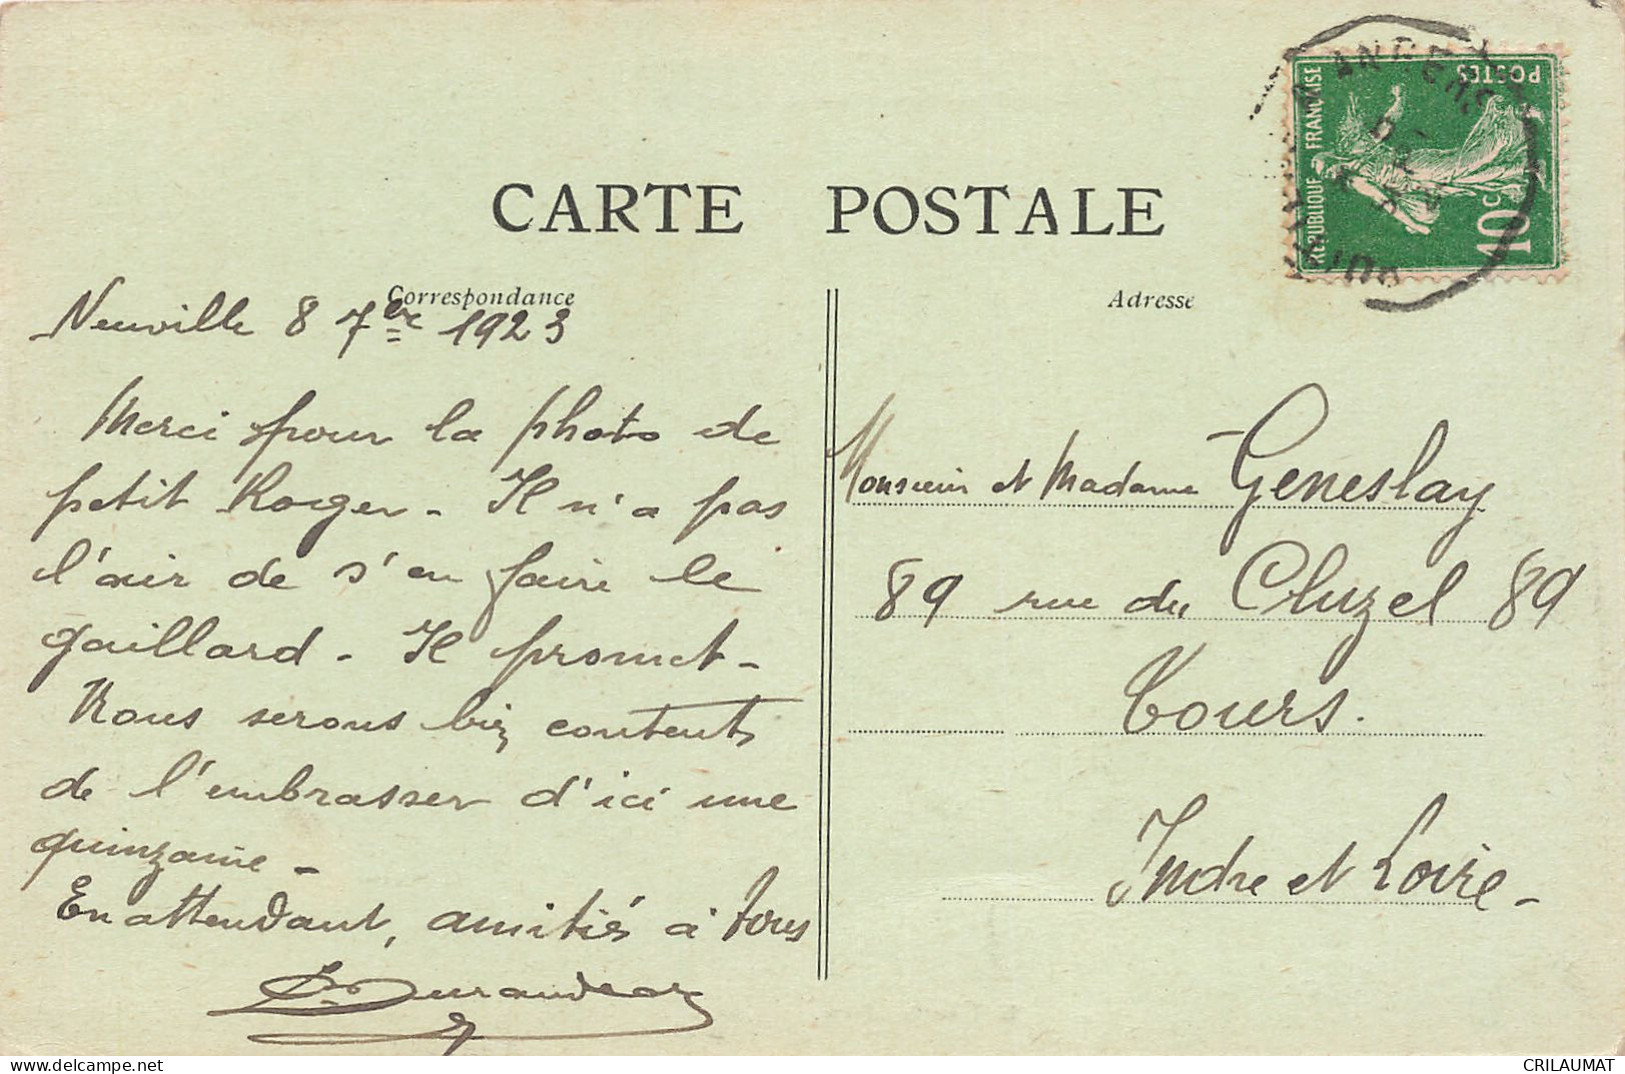 CARTE POSTALE
RÉPUBLIQUE FRANÇAISE
POSTES
10c
ANGERS
Correspondance
Adresse
Neuville 8 7bre 1923
Merci pour la photo de
petit Roger - Il n'a pas
l'air de s'en faire le
gaillard - Il promet -
Nous serons bien contents
de l'embrasser d'ici une
quinzaine -
En attendant, amitiés à tous
Monsieur et Madame Geneslay
89 rue du Cluzel 89
Tours.
Indre et Loire -
CRILAUMAT